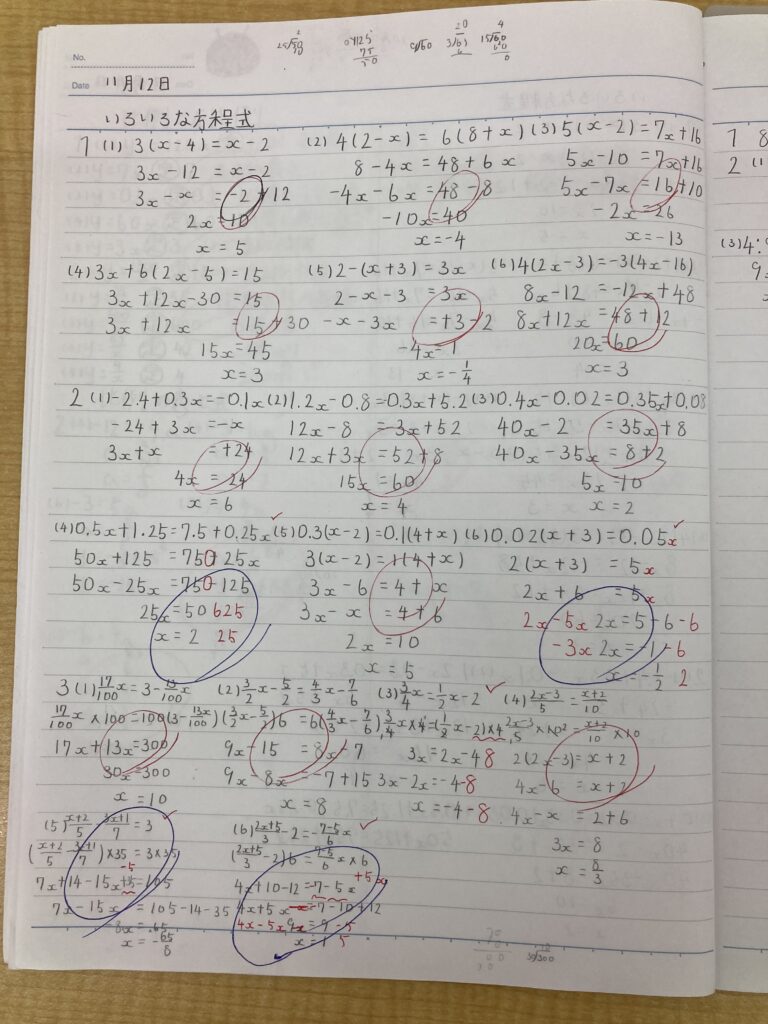 No.
Date 11月12日
いろいろな方程式
1 (1) 3(x-4)=x-2 (2) 4(2-x) = 6(8+x) (3) 5(x-2)=7x+16
3x-12 = x-2 8-4x=48+6x 5x-10 = 7x+16
3x-x = -2+12 -4x-6x=48-8 5x-7x = 16+10
2x=10 -10x=40 -2x=26
x=5 x=-4 x=-13
(4) 3x+6(2x-5)=15 (5) 2-(x+3)=3x (6) 4(2x-3)=-3(4x-16)
3x+12x-30 = 15 2-x-3 = 3x 8x-12 = -12x+48
3x+12x = 15+30 -x-3x = +3-2 8x+12x = 48+12
15x=45 -4x=1 20x=60
x=3 x=-1/4 x=3
2 (1) -2.4+0.3x=-0.1x (2) 1.2x-0.8=-0.3x+5.2 (3) 0.4x-0.02=0.35x+0.08
-24+3x =-x 12x-8 =-3x+52 40x-2 = 35x+8
3x+x =+24 12x+3x = 52+8 40x-35x = 8+2
4x=24 15x=60 5x=10
x=6 x=4 x=2
(4) 0.5x+1.25=7.5+0.25x (5) 0.3(x-2)=0.1(4+x) (6) 0.02(x+3)=0.05x
50x+125 =750+25x 3(x-2)=1(4+x) 2(x+3) = 5x
50x-25x =750-125 3x-6 = 4+x 2x+6 = 5x
25x=50 625 3x-x = 4+6 2x-5x 2x=5-6 -6
x=2 25 2x=10 -3x 2x=-1 -6
x=5 x=-1/2 2
3 (1) 17/100x=3-13/100x (2) 3/2x-5/2=4/3x-7/6 (3) 3/4x=1/2x-2 (4) 2x-3/5=x+2/10
17/100x×100=100(3-13x/100) (3/2x-5/2)6=6(4/3x-7/6) 3/4x×4=(1/2x-2)×4 2x-3/5×10²=x+2/10×10
17x+13x=300 9x-15 =8x-7 3x=2x-48 2(2x-3)=x+2
30x=300 9x-8x=-7+15 3x-2x=-4-8 4x-6 =x+2
x=10 x=8 x=-4-8 4x-x =2+6
(5) x+2/5-3x+1/7=3 (6) 2x+5/3-2=-7-5/6x 3x=8
(x+2/5-3x+1/7)×35=3×35 (2x+5/3-2)6=7-5/6x×6 x=8/3
-5 +5x
7x+14-15x+35=105 4x+10-12=-7-5x
7x-15x =105-14-35 4x+5x =-7-10+12
-8x=65 4x-5x 9x=9-5
x=-65/8 x=1 5